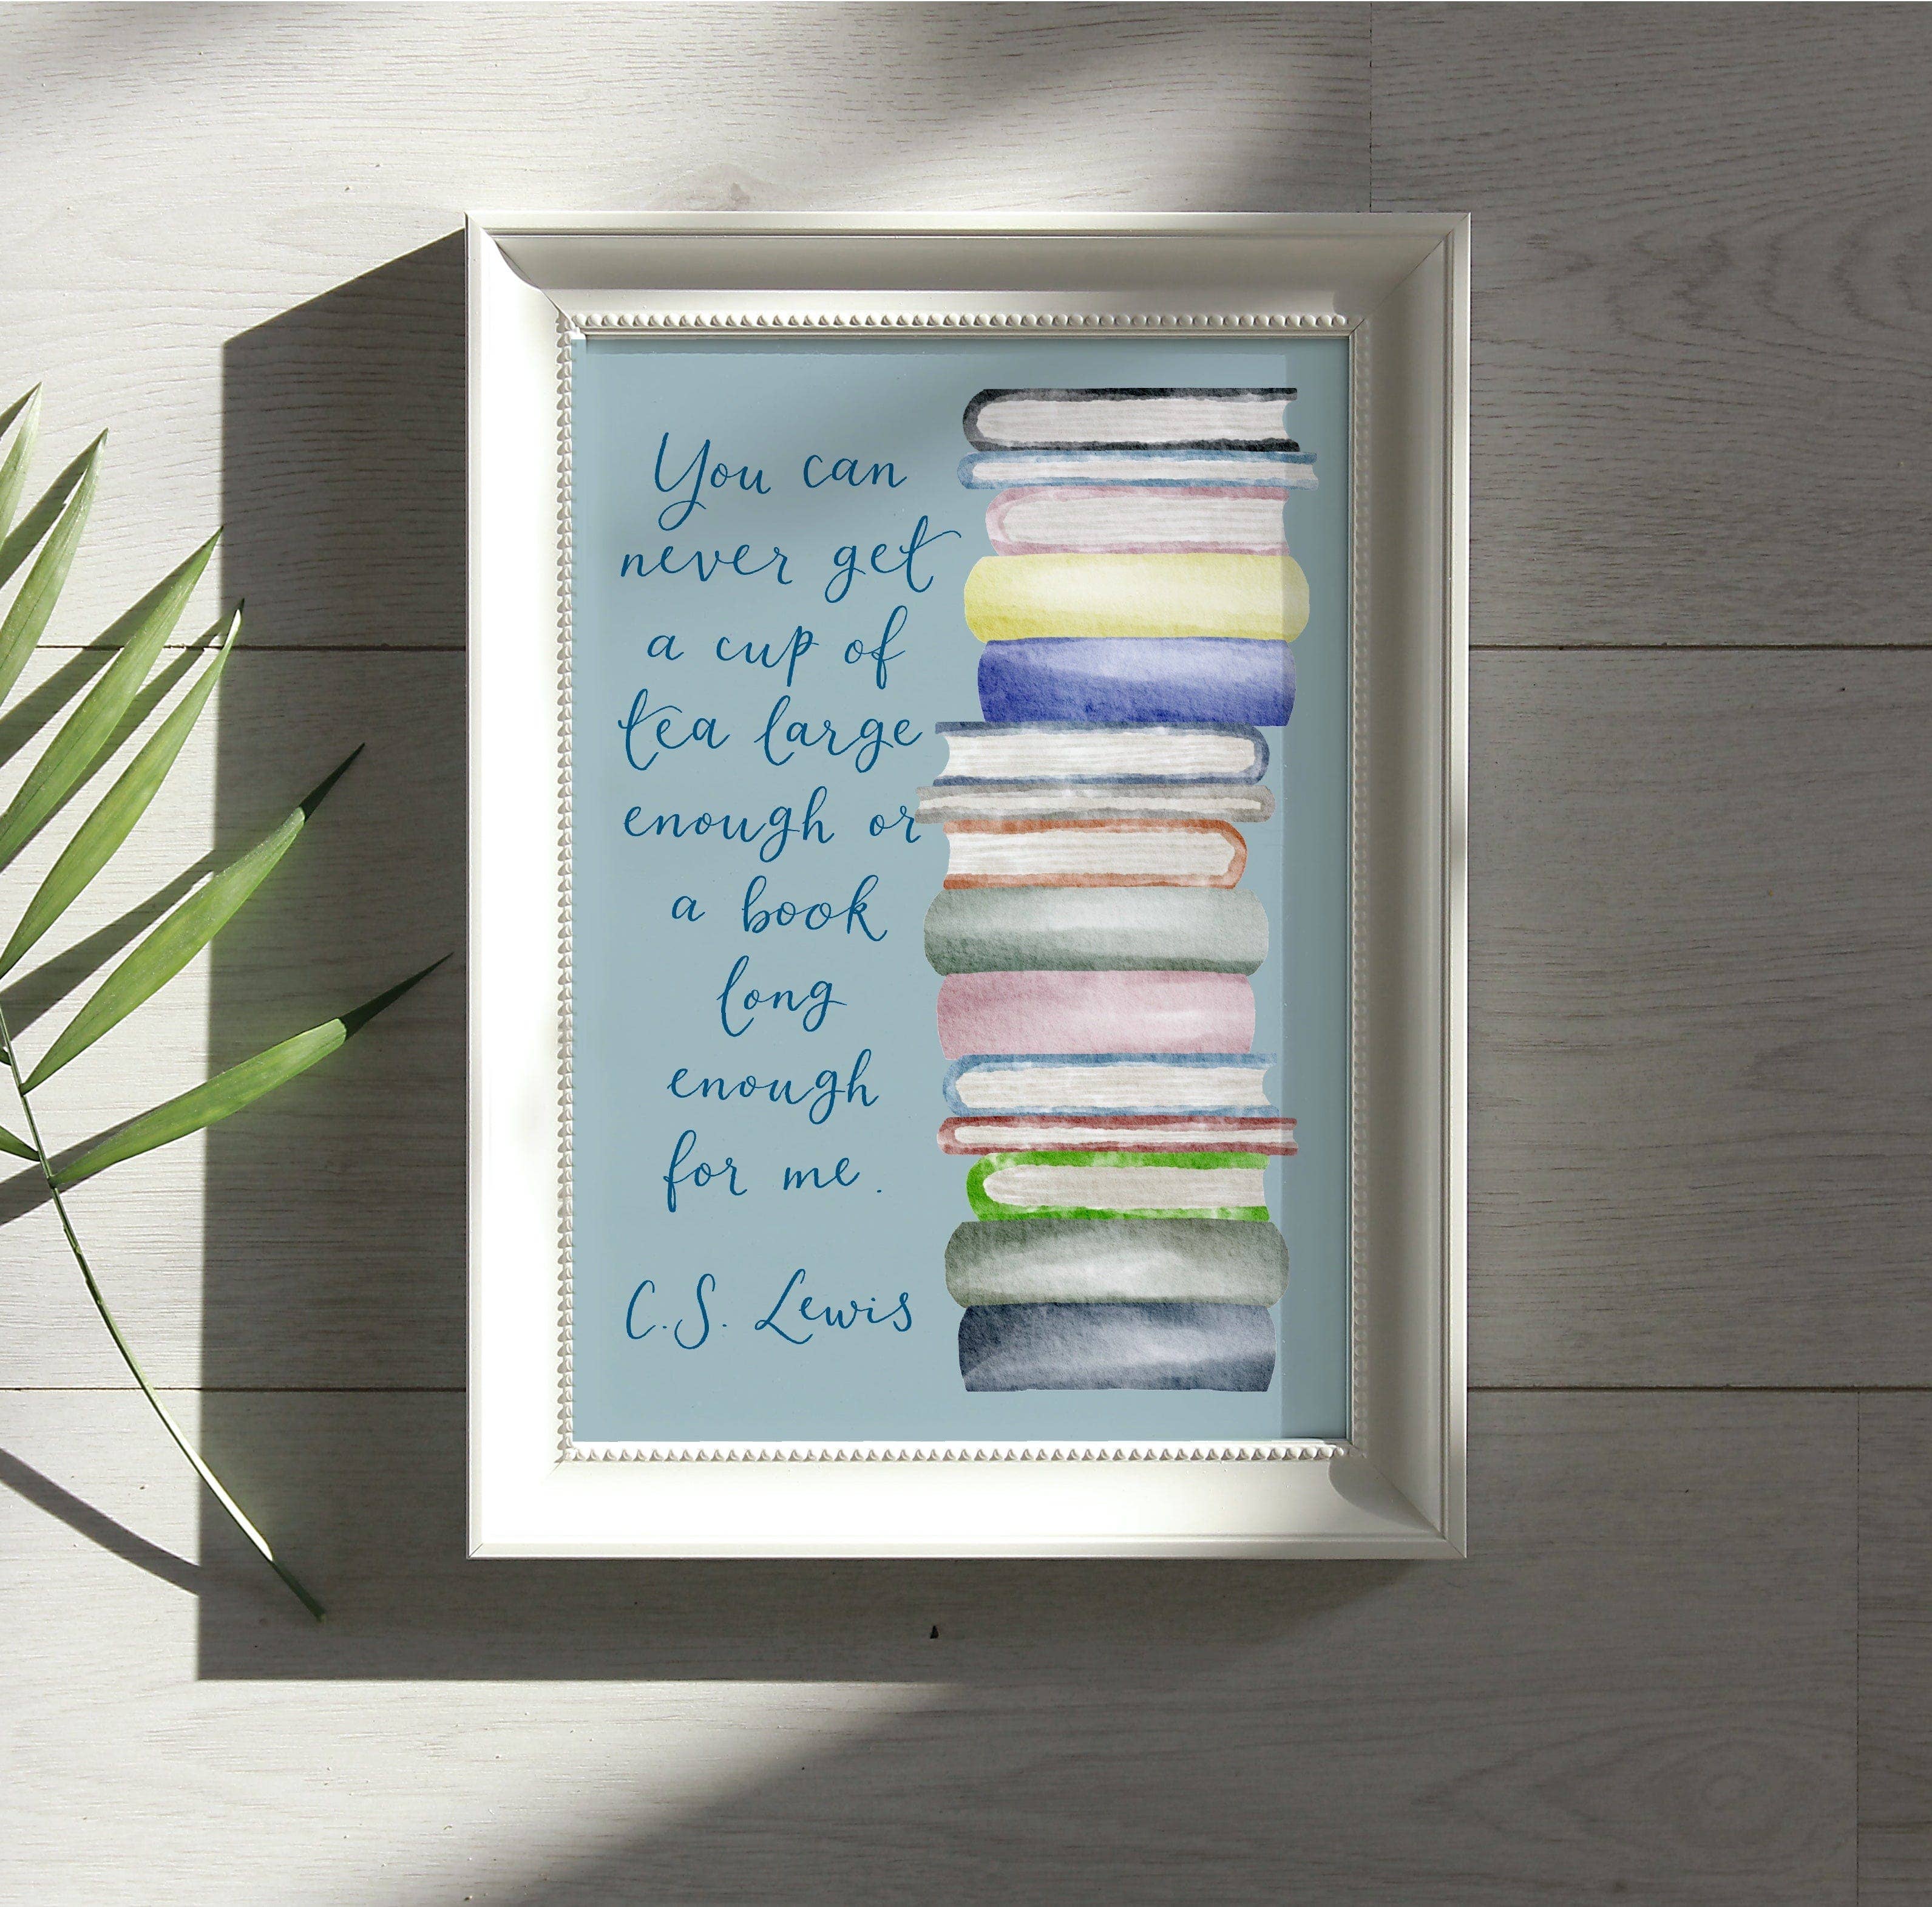 You can
never get
a cup of
tea large
enough or
a book
long
enough
for me.
C.S. Lewis